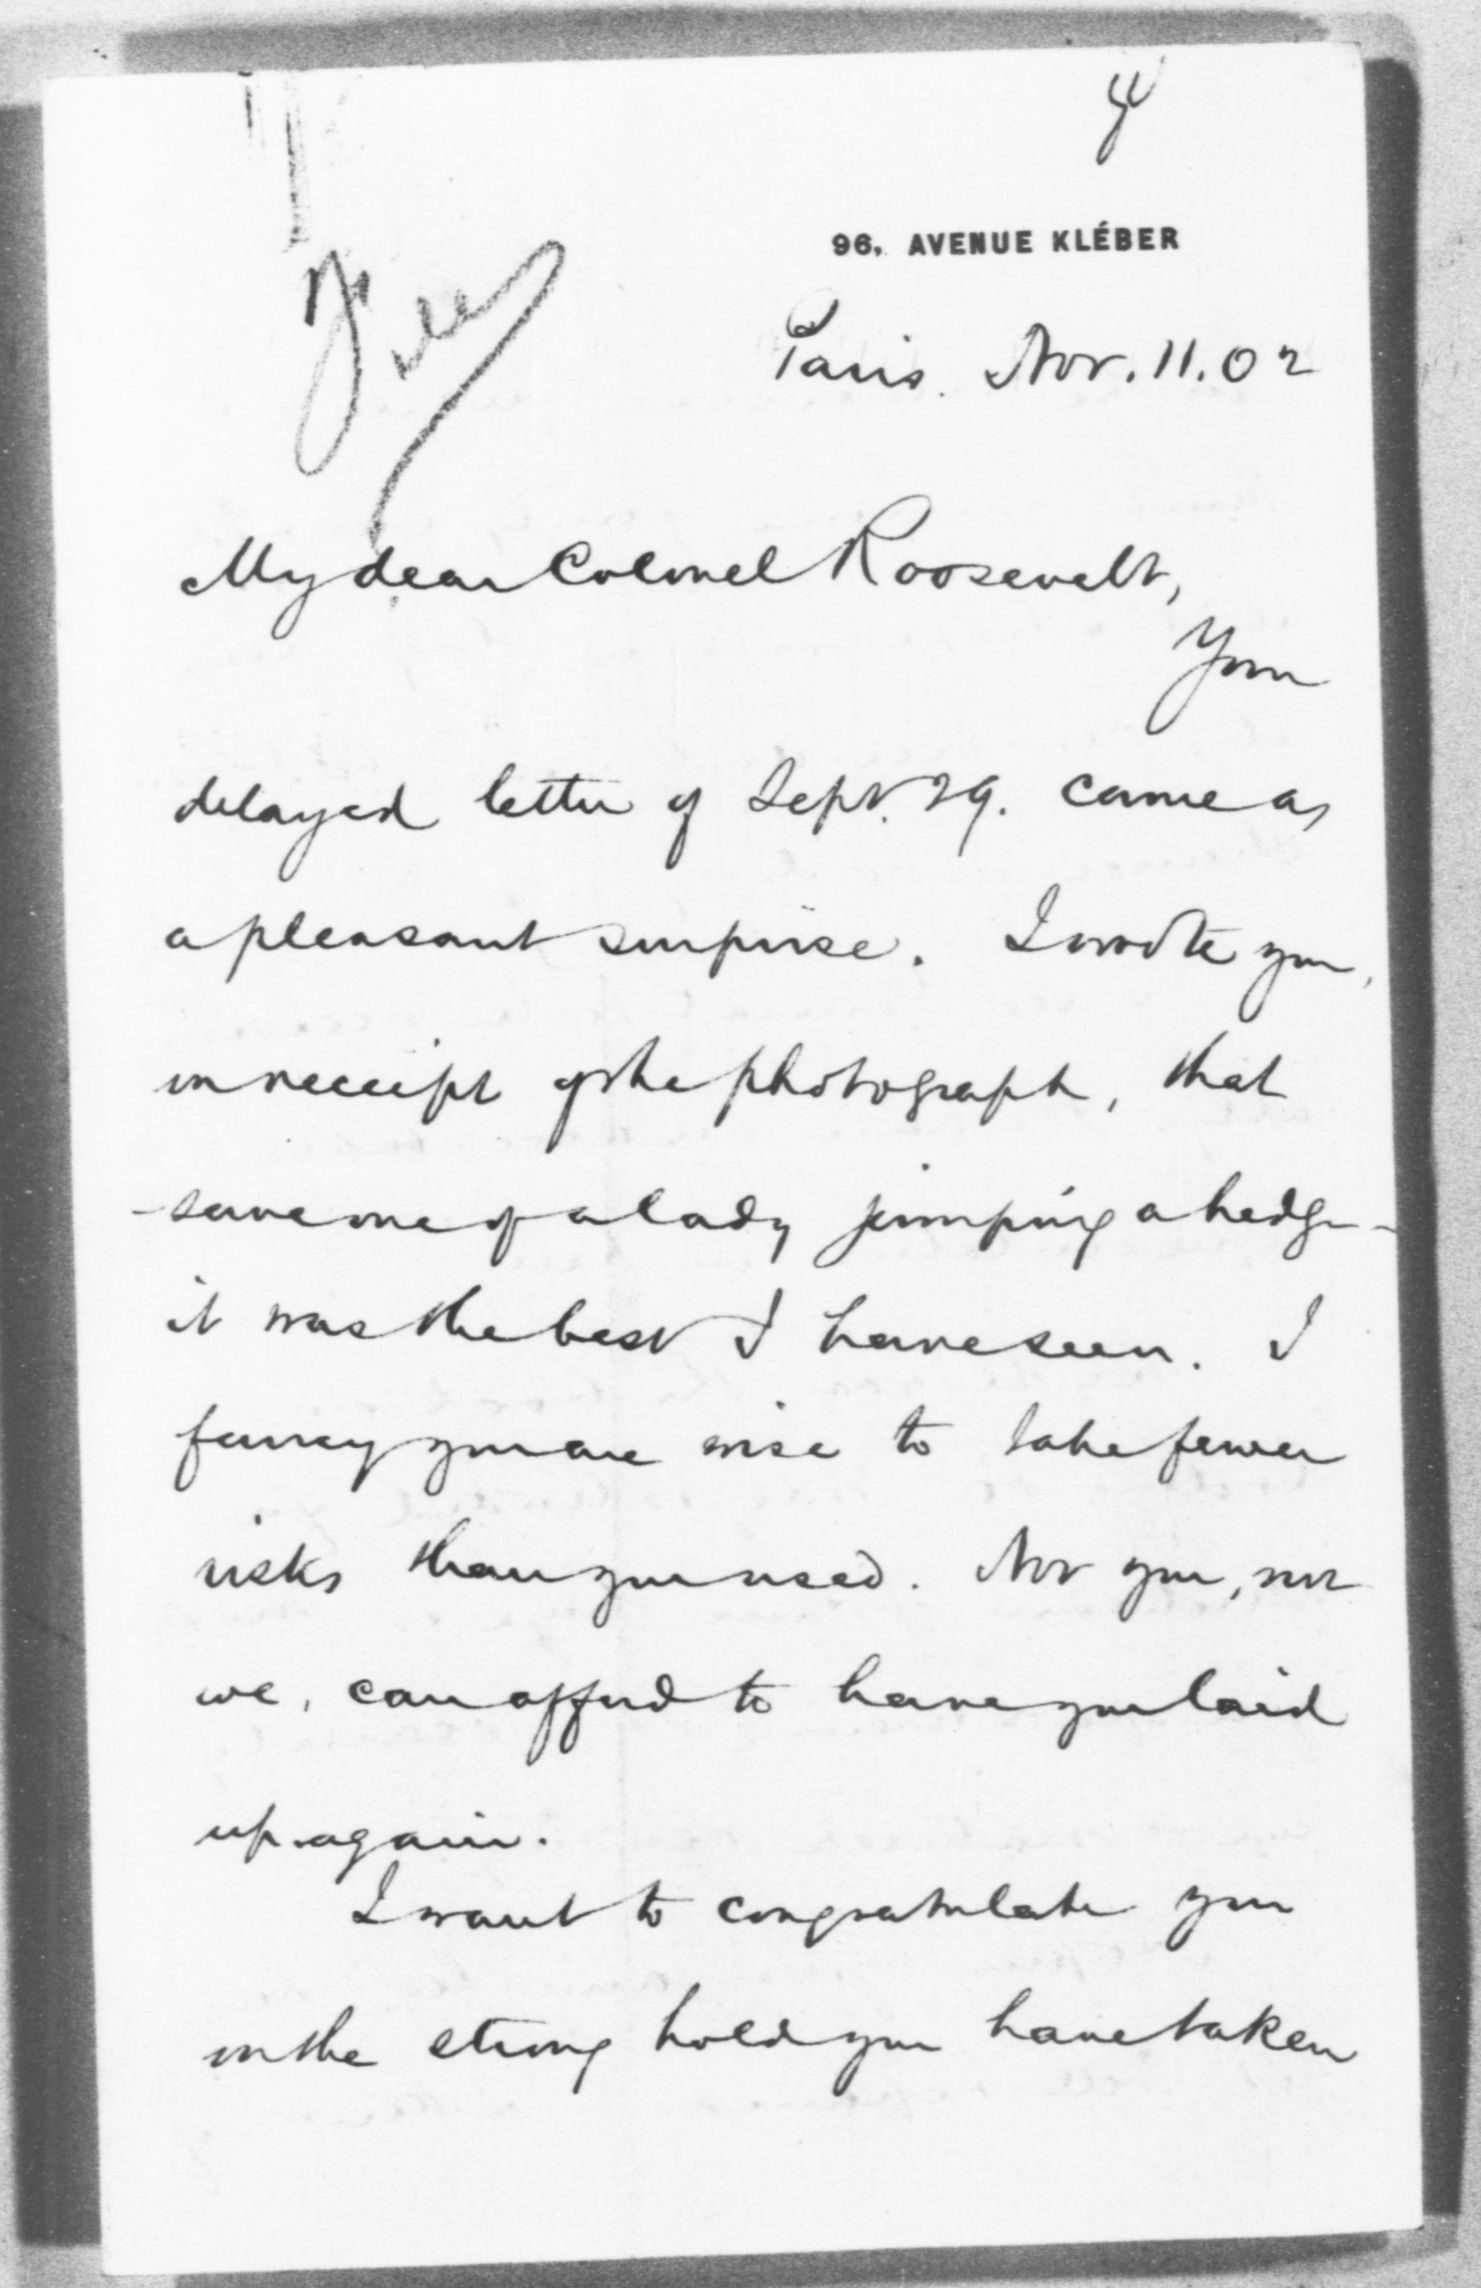 File
96, AVENUE KLÉBER
Paris. Nov. 11. 02
My dear Colonel Roosevelt,
Your
delayed letter of Sept. 29. came as
a pleasant surprise. I wrote you,
on receipt of the photograph, that
- save one of a lady jumping a hedge -
it was the best I have seen. I
fancy you are wise to take fewer
risks than you used. Nor you, nor
we, can afford to have you laid
up again.
I want to congratulate you
on the strong hold you have taken